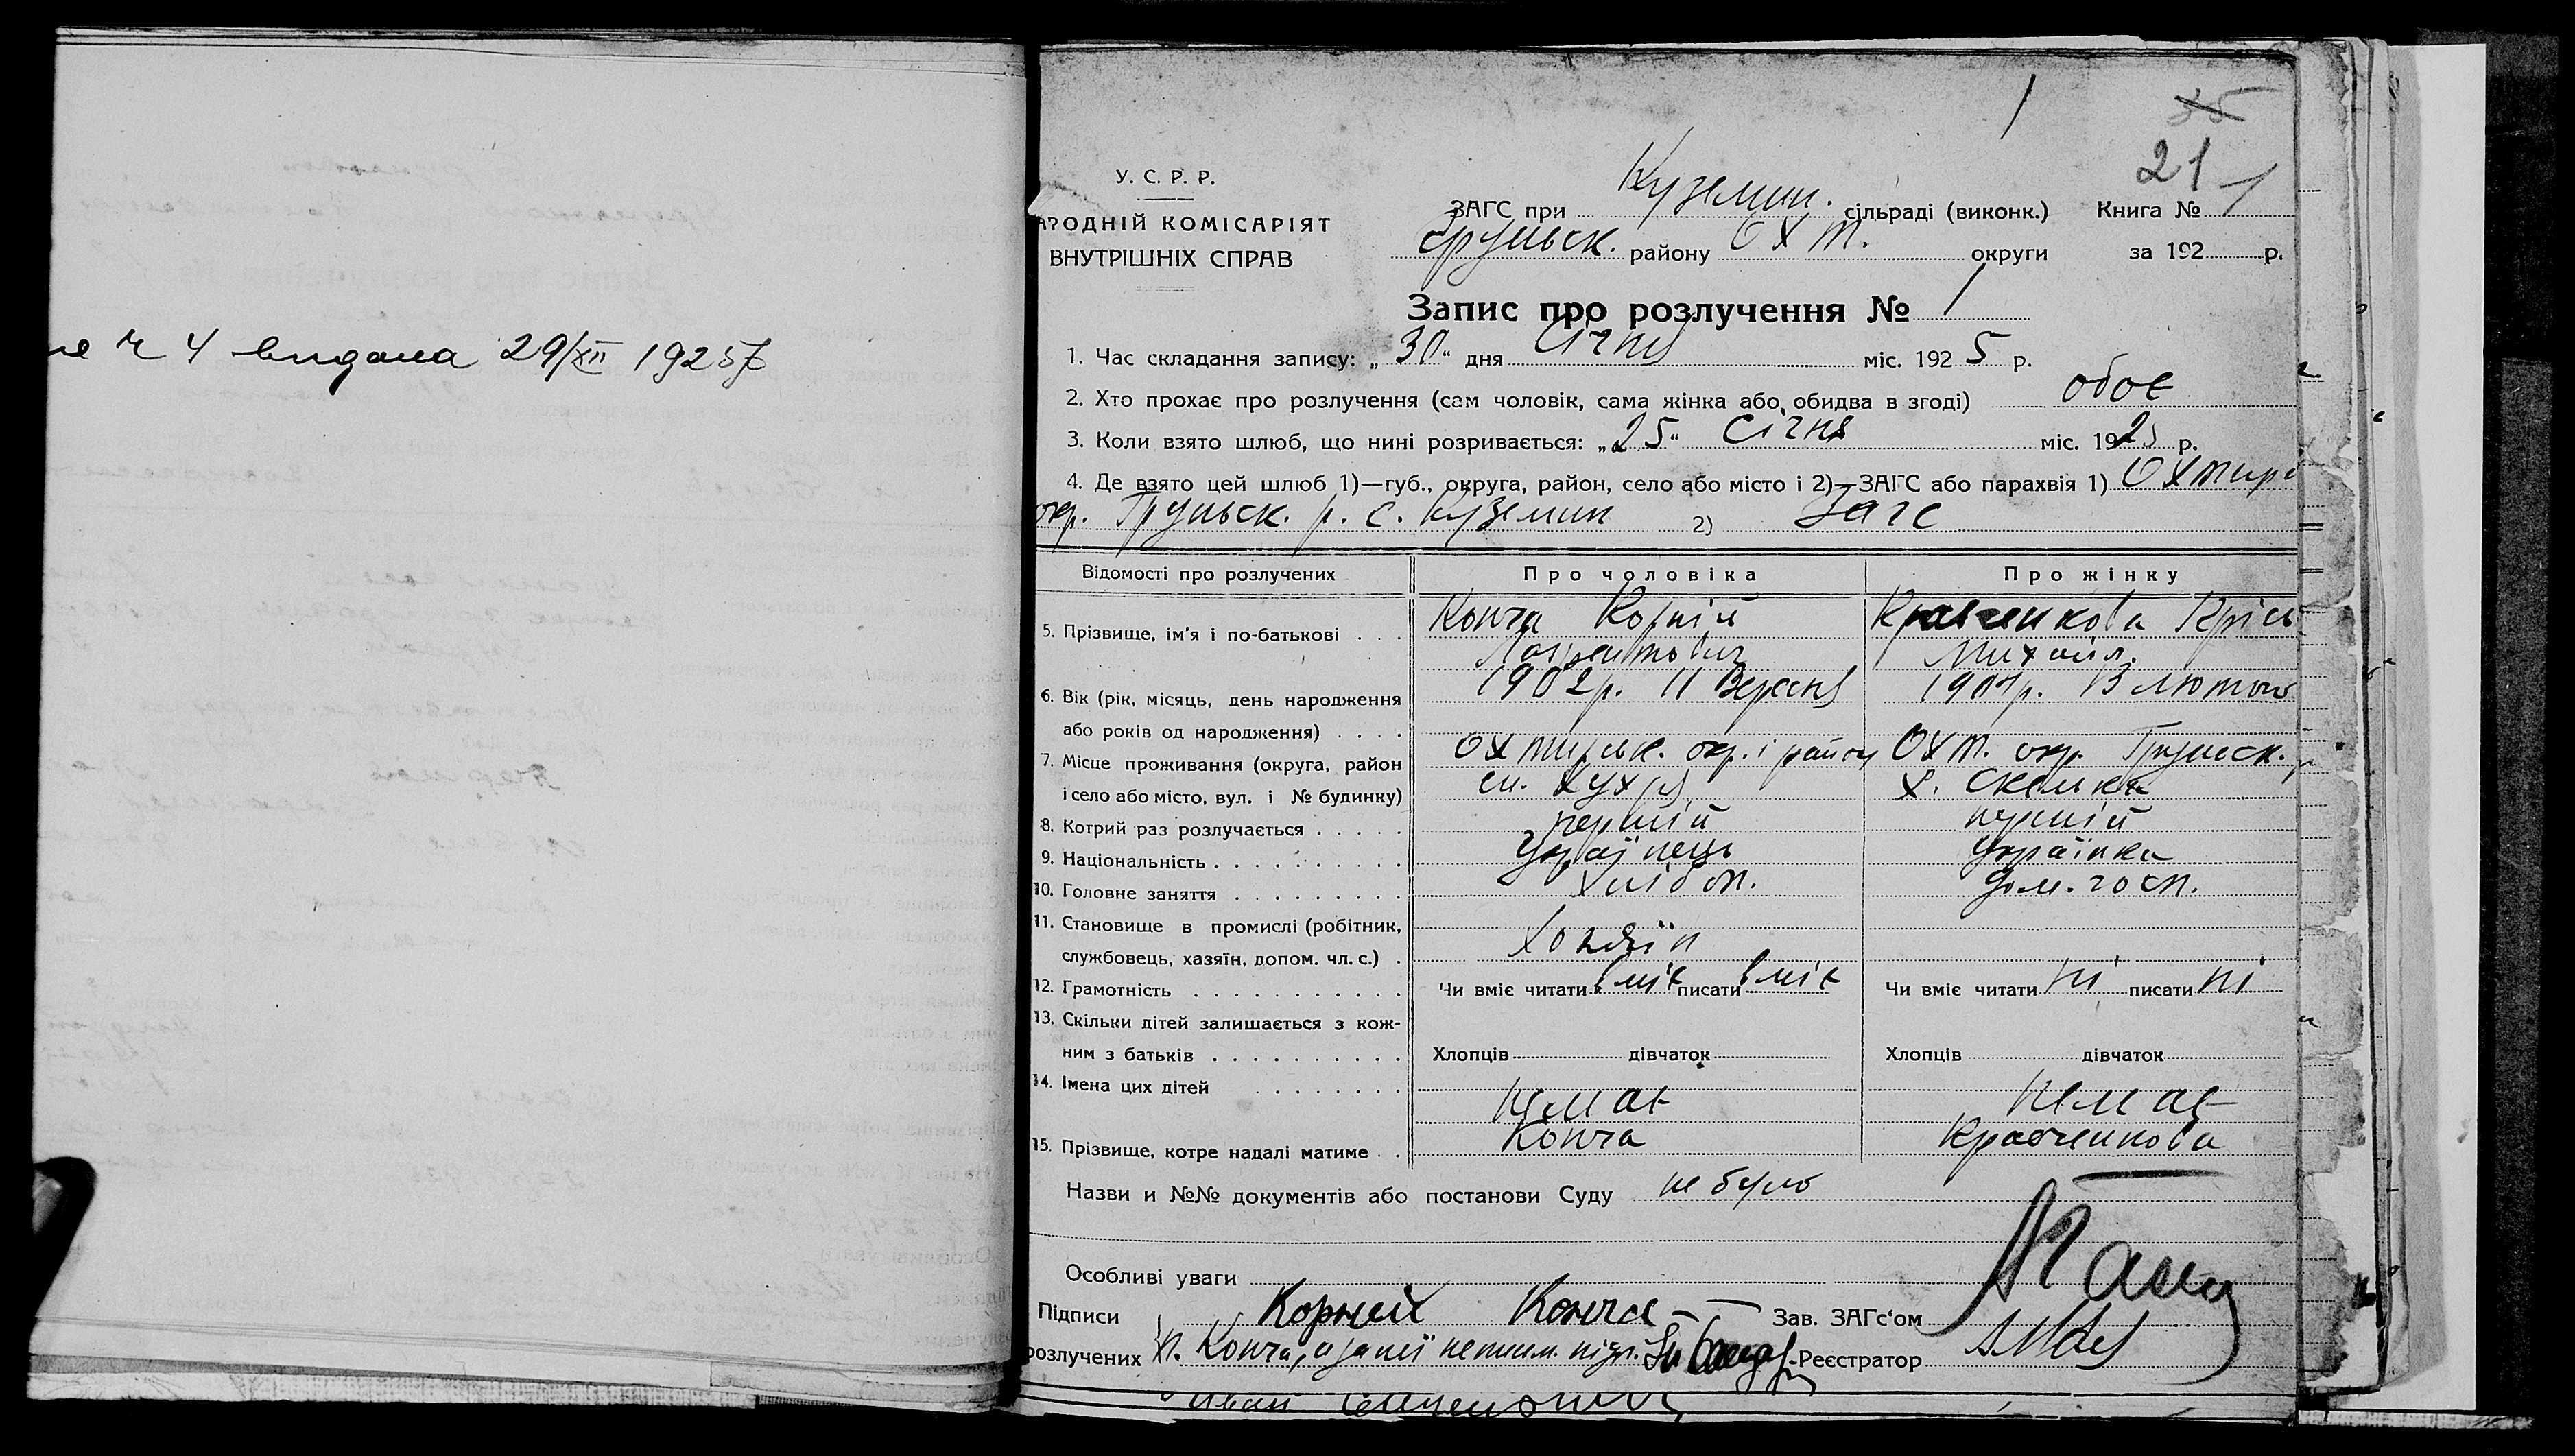 ч 4 видана 29/XII 1925 р
1
21
У. С. Р. Р.
АРОДНІЙ КОМІСАРІЯТ
ВНУТРІШНІХ СПРАВ
ЗАГС при Куземин. сільраді (виконк.) Книга № 1
Грунськ. району Охт. округи за 192 р.
Запис про розлучення № 1
1. Час складання запису: „30“ дня Січня міс. 1925 р.
2. Хто прохає про розлучення (сам чоловік, сама жінка або обидва в згоді) обоє
3. Коли взято шлюб, що нині розривається: „25“ Січня міс. 1925 р.
4. Де взято цей шлюб 1)—губ., округа, район, село або місто і 2)—ЗАГС або парахвія 1) Охтир
окр. Грунськ. р. с. Куземин 2) Загс
Відомості про розлучених Про чоловіка Про жінку
5. Прізвище, ім'я і по-батькові . . . Конча Корній Кравченкова Крісь
Лаврентович Михайл.
6. Вік (рік, місяць, день народження 1902 р. 11 Вересня 1907 р. 13 Лютого
або років од народження) . . . .
7. Місце проживання (округа, район Охтирськ. окр. і району Охт. окр. Грунськ. р
і село або місто, вул. і № будинку) Кухя Х. Скелька
8. Котрий раз розлучається . . . . . перший перший
9. Національність . . . . . . . . . . Українець Українка
10. Головне заняття . . . . . . . . . Хлібоп. дом. госп.
11. Становище в промислі (робітник,
службовець, хазяїн, допом. чл. с.) . Хозяїн
12. Грамотність . . . . . . . . . . . Чи вміє читати вміє писати вміє Чи вміє читати ні писати ні
13. Скільки дітей залишається з кож-
ним з батьків . . . . . . . . . . Хлопців дівчаток Хлопців дівчаток
14. Імена цих дітей . . . . . . . .
Немає Немає
15. Прізвище, котре надалі матиме . . Конча Кравченкова
Назви и №№ документів або постанови Суду не було
Особливі уваги
Підписи Корней Конча Зав. ЗАГс‘ом
розлучених К. Конча, а за неї неписьм. підп. Реєстратор
Иван